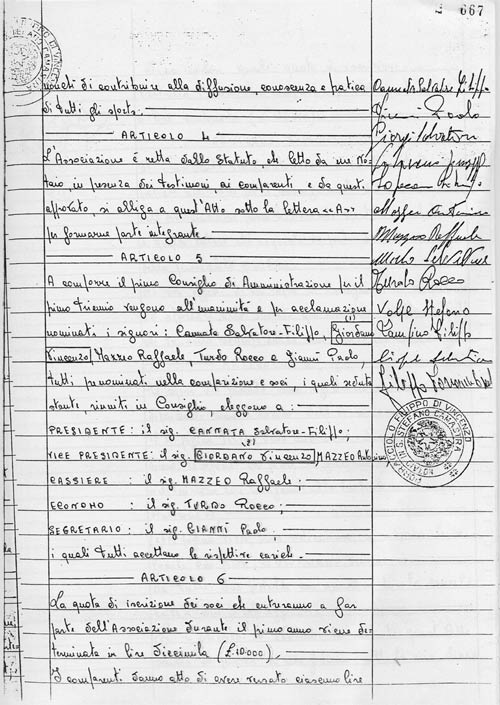 2 667
nonché di contribuire alla diffusione, conoscenza e pratica
di tutti gli sports.
ARTICOLO 4
L'Associazione è retta dallo Statuto, che letto da me No-
taio, in presenza dei testimoni, ai comparenti, e da questi
approvato, si allega a quest'Atto sotto la lettera "A"
per formarne parte integrante.
ARTICOLO 5
A comporre il primo Consiglio di Amministrazione per il
primo triennio vengono all'unanimità e per acclamazione
(1)
nominati i signori: Cannata Salvatore-Filippo, Giordano
Vincenzo, Mazzeo Raffaele, Turdo Rocco e Giannì Paolo,
tutti prenominati nella comparizione e soci, i quali seduta
stante, riuniti in Consiglio, eleggono a:
PRESIDENTE: il sig. CANNATA Salvatore-Filippo;
(2)
VICE PRESIDENTE: il sig. GIORDANO Vincenzo, MAZZEO Antonino
CASSIERE : il sig. MAZZEO Raffaele;
ECONOMO : il sig. TURDO Rocco;
SEGRETARIO : il sig. GIANNÌ Paolo,
i quali tutti accettano le rispettive cariche.
ARTICOLO 6
La quota di iscrizione dei soci che entreranno a far
parte dell'Associazione durante il primo anno viene de-
terminata in lire diecimila (£.10.000).
I comparenti danno atto di avere versato ciascuno lire
Cannata Salvatore Filippo
Giannì Paolo
Salvatore
Mazzeo Antonino
Mazzeo Raffaele
Turdo Rocco
Volpe Stefano
Filippo
NOTAIO IN S. STEFANO CAMASTRA
DI VINCENZO